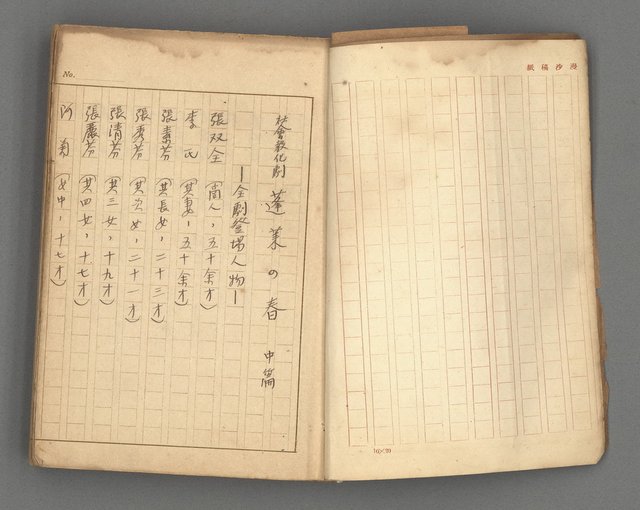 漫沙稿紙
10×20
No.
社會教化劇 蓬萊の春 中篇
—全劇登場人物—
張双全(商人，五十余才)
李氏(其妻，五十余才)
張素芬(其長女，二十三才)
張秀芬(其次女，二十一才)
張清芬(其三女，十九才)
張麗芬(其四女，十七才)
阿菊(女中，十七才)